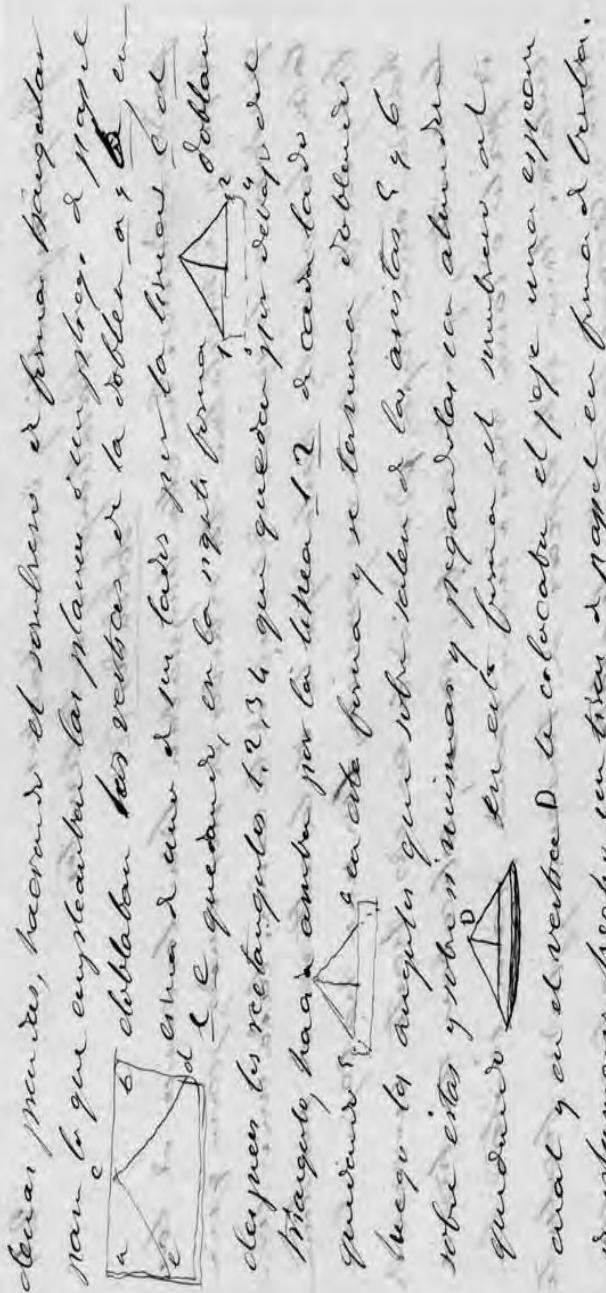 demas prendas, haciendo el sombrero de forma triangular
para lo que empleaban las planas ó un pliego de papel
a b c d e
doblaban los vertices de la doblez a y b en
cima de uno de sus lados por la lineas c d
c e quedando, en la sigte forma 1 2 3 4 doblan
despues los rectangulos 1, 2, 3 4, que quedan por debajo del
triangulo, hacia arriba por la linea 1 2 de cada lado
quedando 5 6 en esta forma y se termina doblando
luego los angulos que sobre salen de las aristas 5 y 6
sobre éstas y sobre si mismas y pegandolas con almidon
quedando D en esta forma el sombrero al
cual y en el vertice D le colocaba el paje una especie
de papel en forma de